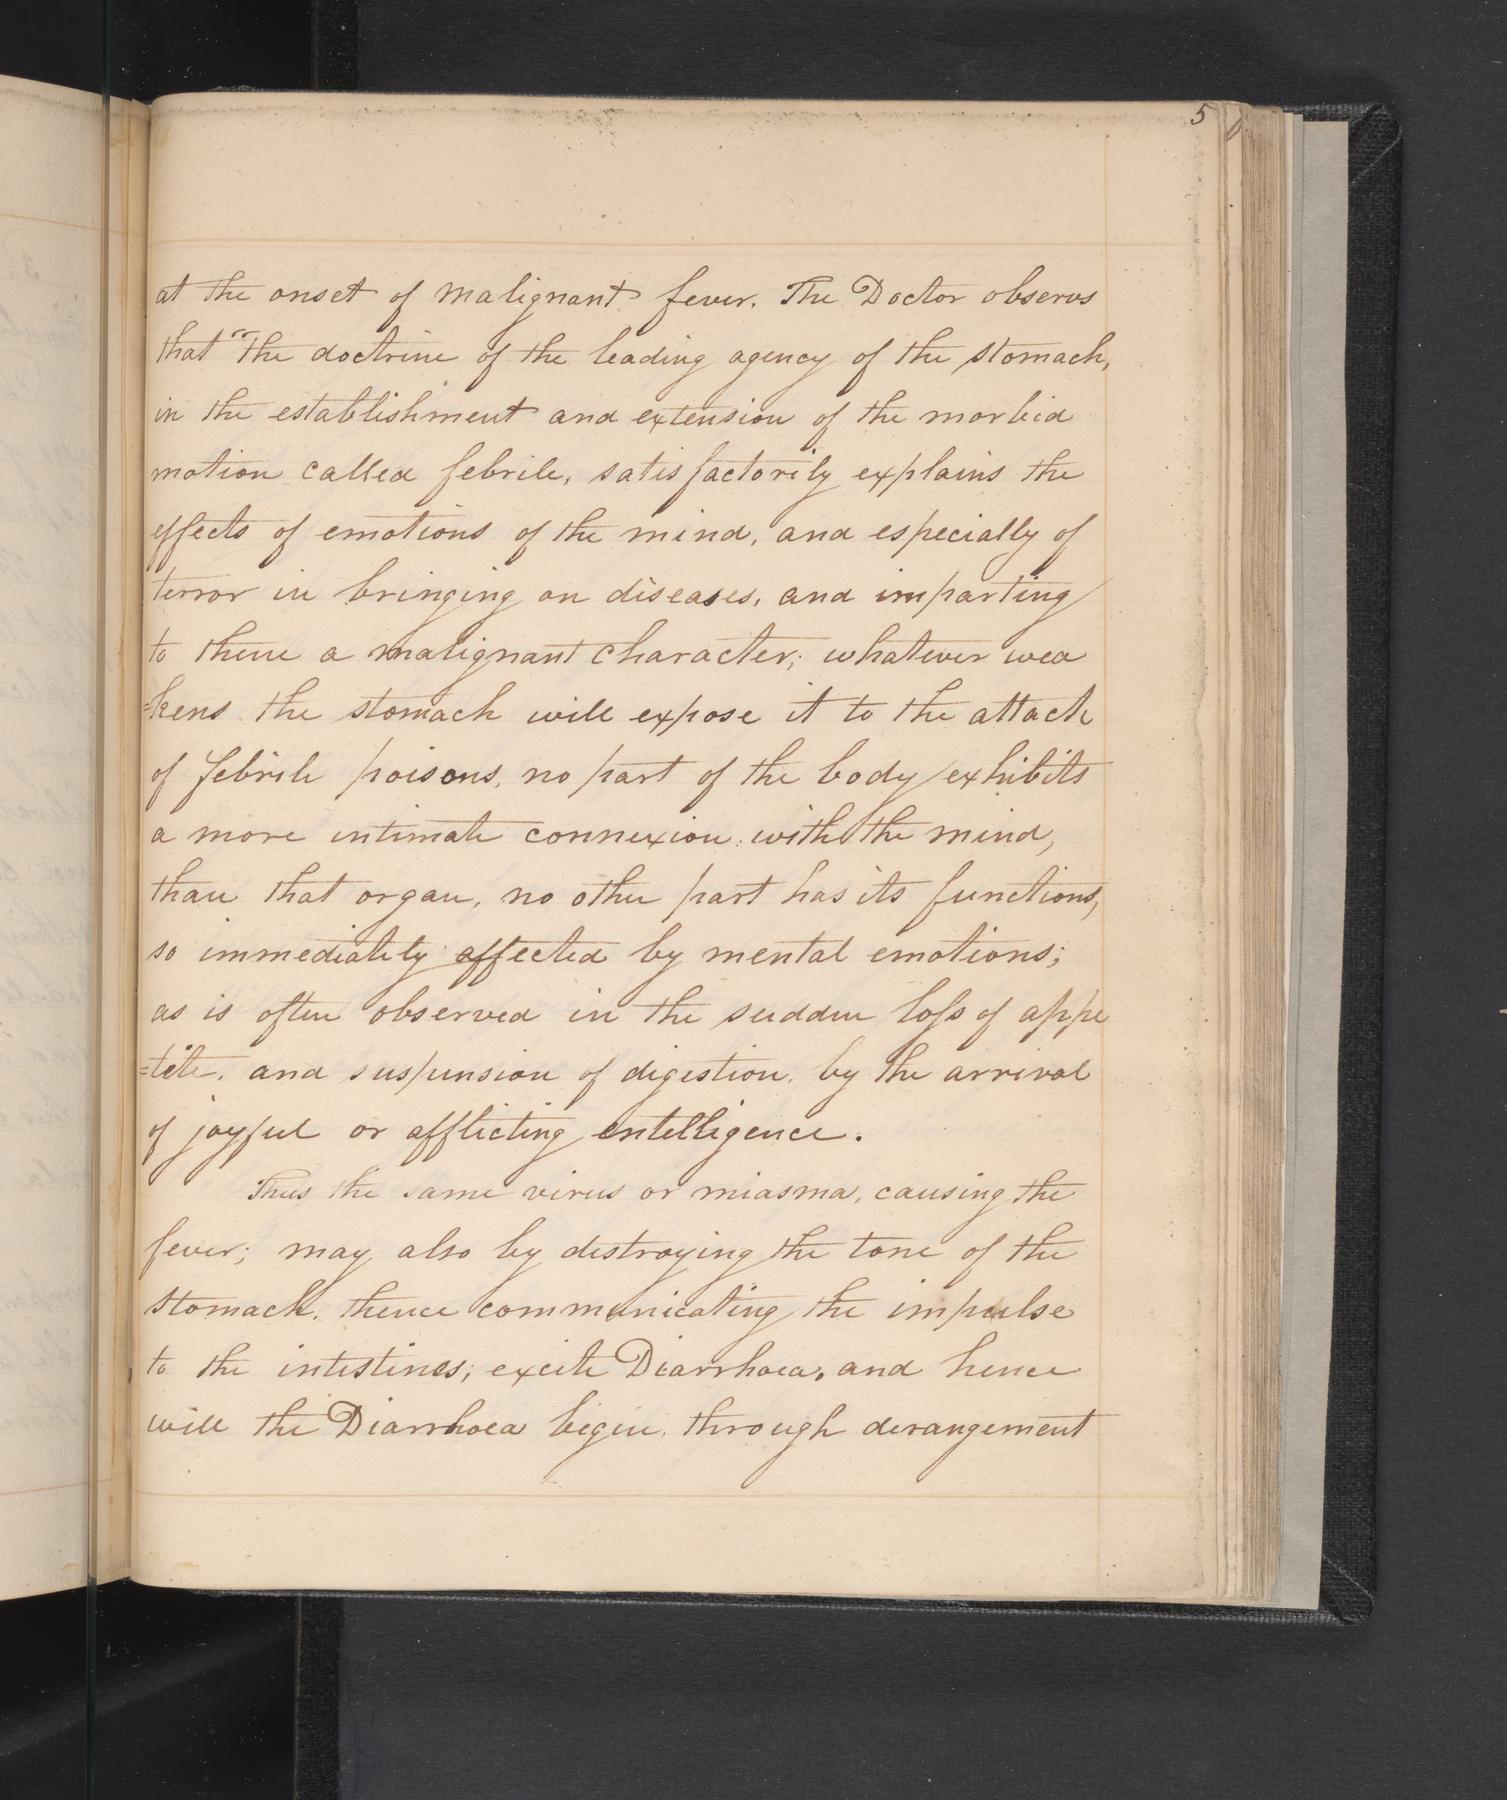 5
at the onset of malignant fever. The Doctor observs
that "the doctrine of the leading agency of the stomach,
in the establishment and extension of the morbid
motion called febrile, satisfactorily explains the
effects of emotions of the mind, and especially of
terror in bringing on diseases, and imparting
to them a malignant character; whatever wea
=kens the stomach will expose it to the attack
of febrile poisons, no part of the body exhibits
a more intimate connexion with the mind,
than that organ, no other part has its functions,
so immediately affected by mental emotions;
as is often observed in the sudden loss of appe
=tite, and suspension of digestion, by the arrival
of joyful or afflicting entelligence.
Thus the same virus or miasma, causing the
fever; may also by destroying the tone of the
stomach, thence communicating the impulse
to the intestines, excite Diarrhoea, and hence
will the Diarrhoea begin, through derangement